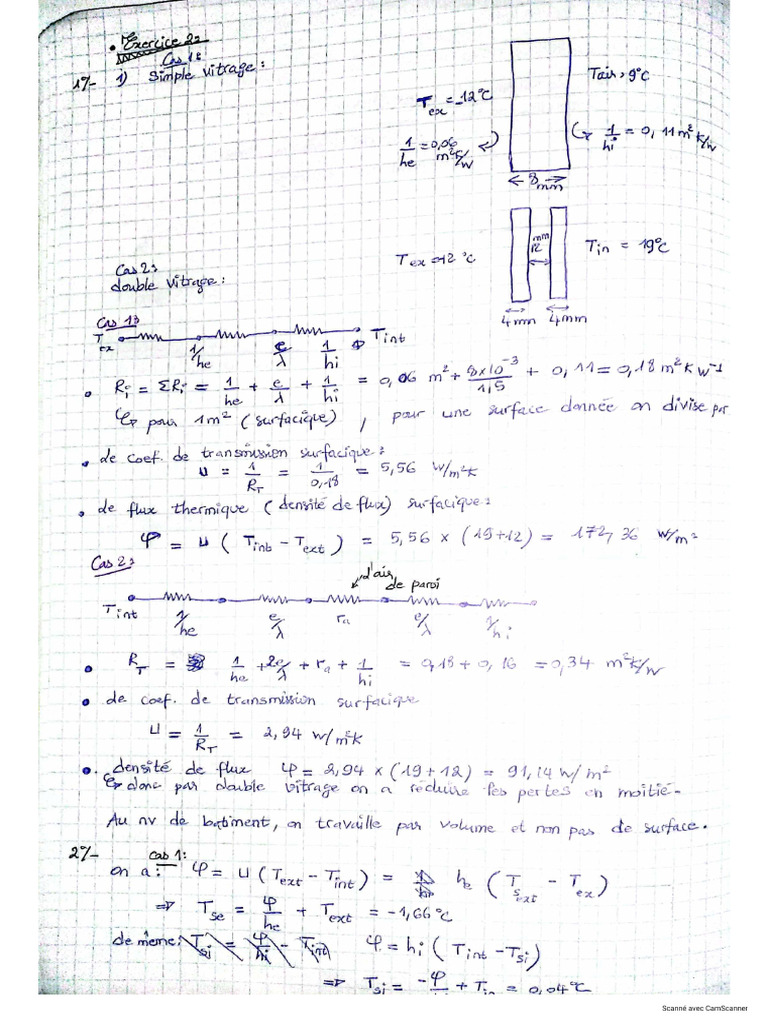 • Exercice 2:
Cas 1:
1°/- 1) Simple vitrage:
T ex = -12°C
1/he = 0,06 m²K/W
Tair, 9°C
1/hi = 0,11 m²K/W
8 mm
Cas 2:
double vitrage:
T ex = -12 °C
mm
12
T in = 19°C
4 mm 4 mm
Cas 1:
T ex 1/he e/λ 1/hi Tint
• Ri = ΣRi = 1/he + e/λ + 1/hi = 0,06 m² + 8×10⁻³/1,5 + 0,11 = 0,18 m² K W⁻¹
↳ pour 1m² (surfacique), pour une surface donnée on divise par
• de coef. de transmission surfacique:
U = 1/RT = 1/0,18 = 5,56 W/m²K
• de flux thermique (densité de flux) surfacique:
φ = U (Tint - Text) = 5,56 × (19+12) = 172,36 W/m²
Cas 2:
d'air
de paroi
Tint 1/he e/λ ra e/λ 1/hi
• RT = 1/he + 2e/λ + ra + 1/hi = 0,18 + 0,16 = 0,34 m²K/W
• de coef. de transmission surfacique
U = 1/RT = 2,94 W/m²K
• densité de flux φ = 2,94 × (19+12) = 91,14 W/m²
↳ donc par double vitrage on a réduire les pertes en moitié-
Au nv de batiment, on travaille par volume et non pas de surface.
2°/- Cas 1:
on a: φ = U (Text - Tint) = he (Ts ext - Tex)
⇒ Tse = φ/he + Text = -1,66°C
de même: Tsi = φ/hi - Tint φ = hi (Tint - Tsi)
⇒ Tsi = -φ/hi + Tin = 0,04°C
Scanné avec CamScanner